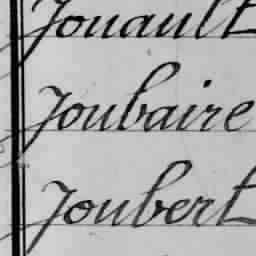 Jouault
Joubaire
Joubert